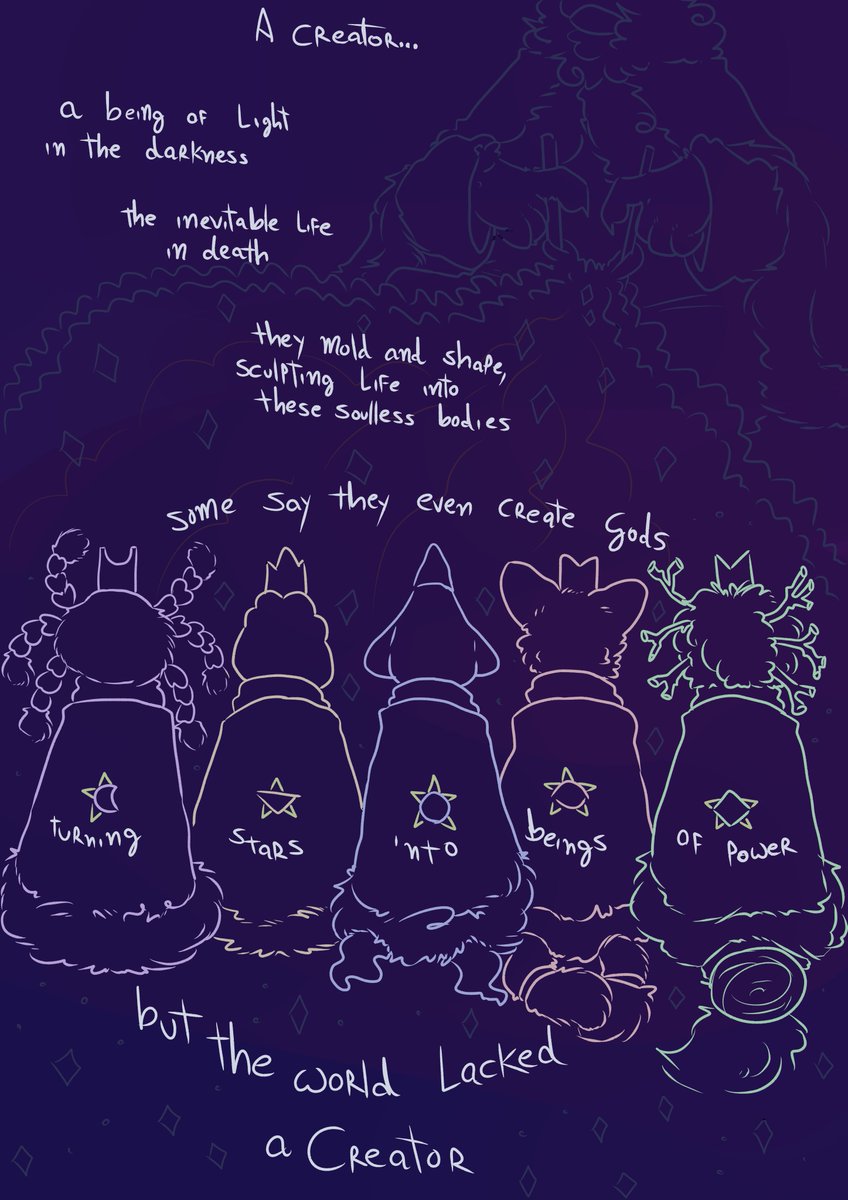 A Creator...
a being of Light
in the darkness
the inevitable Life
in death
they mold and shape,
sculpting Life into
these soulless bodies
some say they even create Gods
turning stars into beings of power
but the world Lacked
a Creator